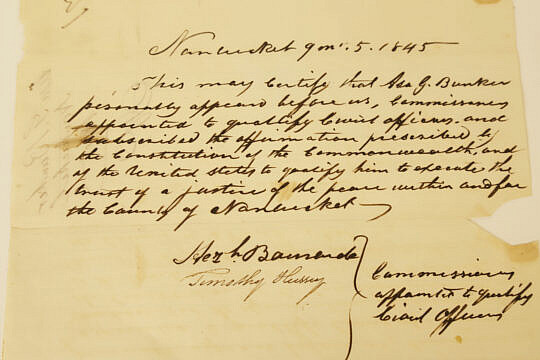 Nantucket 9mo. 5. 1845
This may Certify that Asa G. Bunker
personally appeared before us, Commissioners
appointed to qualify Civil officers and
subscribed the affirmation prescribed by
the Constitution of the Commonwealth, and
of the United States to qualify him to execute the
trust of a justice of the peace within and for
the County of Nantucket
Hezh. Barnard
Timothy Hussey
Commissioners
appointed to qualify
Civil Officers